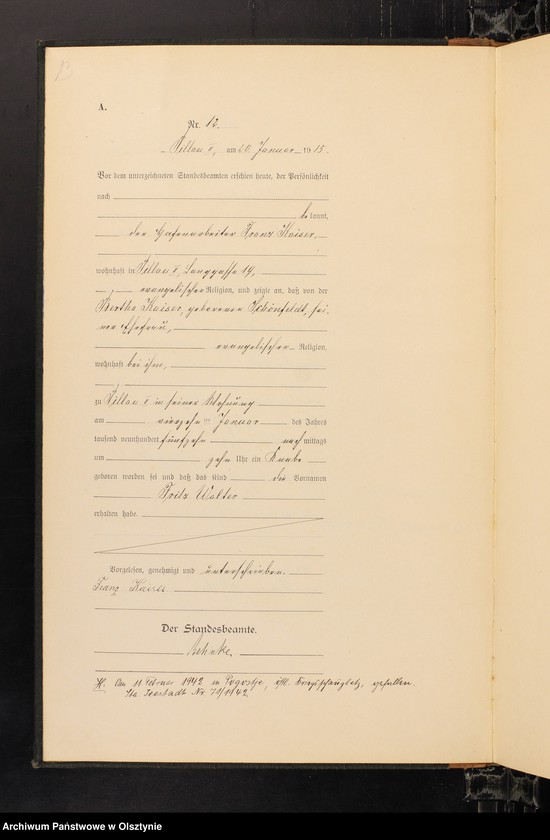 13
A.
Nr. 12.
Pillau II, am 20. Januar 1915.
Vor dem unterzeichneten Standesbeamten erschien heute, der Persönlichkeit
nach
bekannt,
der Hafenarbeiter Franz Kaiser,
wohnhaft in Pillau II, Langgasse 14,
evangelischer Religion, und zeigte an, daß von der
Bertha Kaiser, geborenen Schönfeldt, sei-
ner Ehefrau,
evangelischer Religion,
wohnhaft bei ihm,
zu Pillau II in seiner Wohnung
am vierzehnten Januar des Jahres
tausend neunhundert fünfzehn nachmittags
um zehn Uhr ein Knabe
geboren worden sei und daß das Kind die Vornamen
Fritz Walter
erhalten habe.
Vorgelesen, genehmigt und unterschrieben.
Franz Kaiser
Der Standesbeamte.
H. Am 11 Februar 1942 in Pogostje, östl. Kriegsschauplatz, gefallen.
Sta. Seestadt Nr. 71/1942
Archiwum Państwowe w Olsztynie